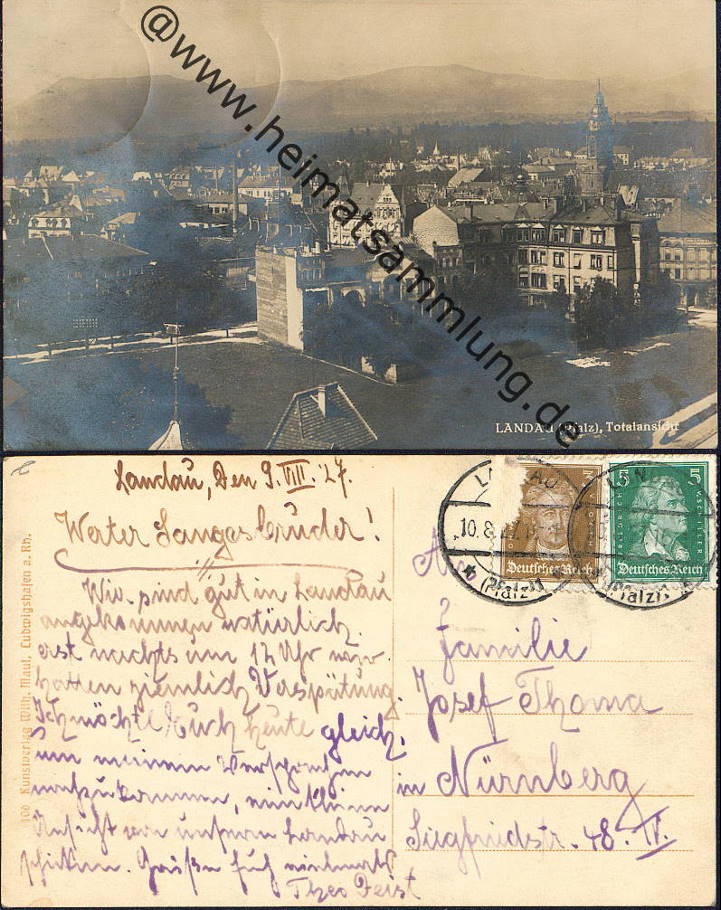 @www.heimatsammlung.de
LANDAU (Pfalz), Totalansicht
Landau, Den 9.VIII.27.
Werter Sangesbruder!
Wir sind gut in Landau
angekommen natürlich
erst nachts um 12 Uhr
hatten ziemlich Verspätung.
Ich möchte Euch heute gleich,
um meinem Versprechen
nachzukommen, eine kleine
Ansicht von unserem Landau
schicken. Grüße Euch vielmals
Theo Feist
100 Kunstverlag Wilh. Maul, Ludwigshafen a. Rh.
LANDAU
10.8.27
(Pfalz)
Deutsches Reich
LAN
(Pfalz)
5
F.v.SCHILLER
Deutsches Reich
An
Familie
Josef Thoma
in Nürnberg
Siegfriedstr. 48. IV.